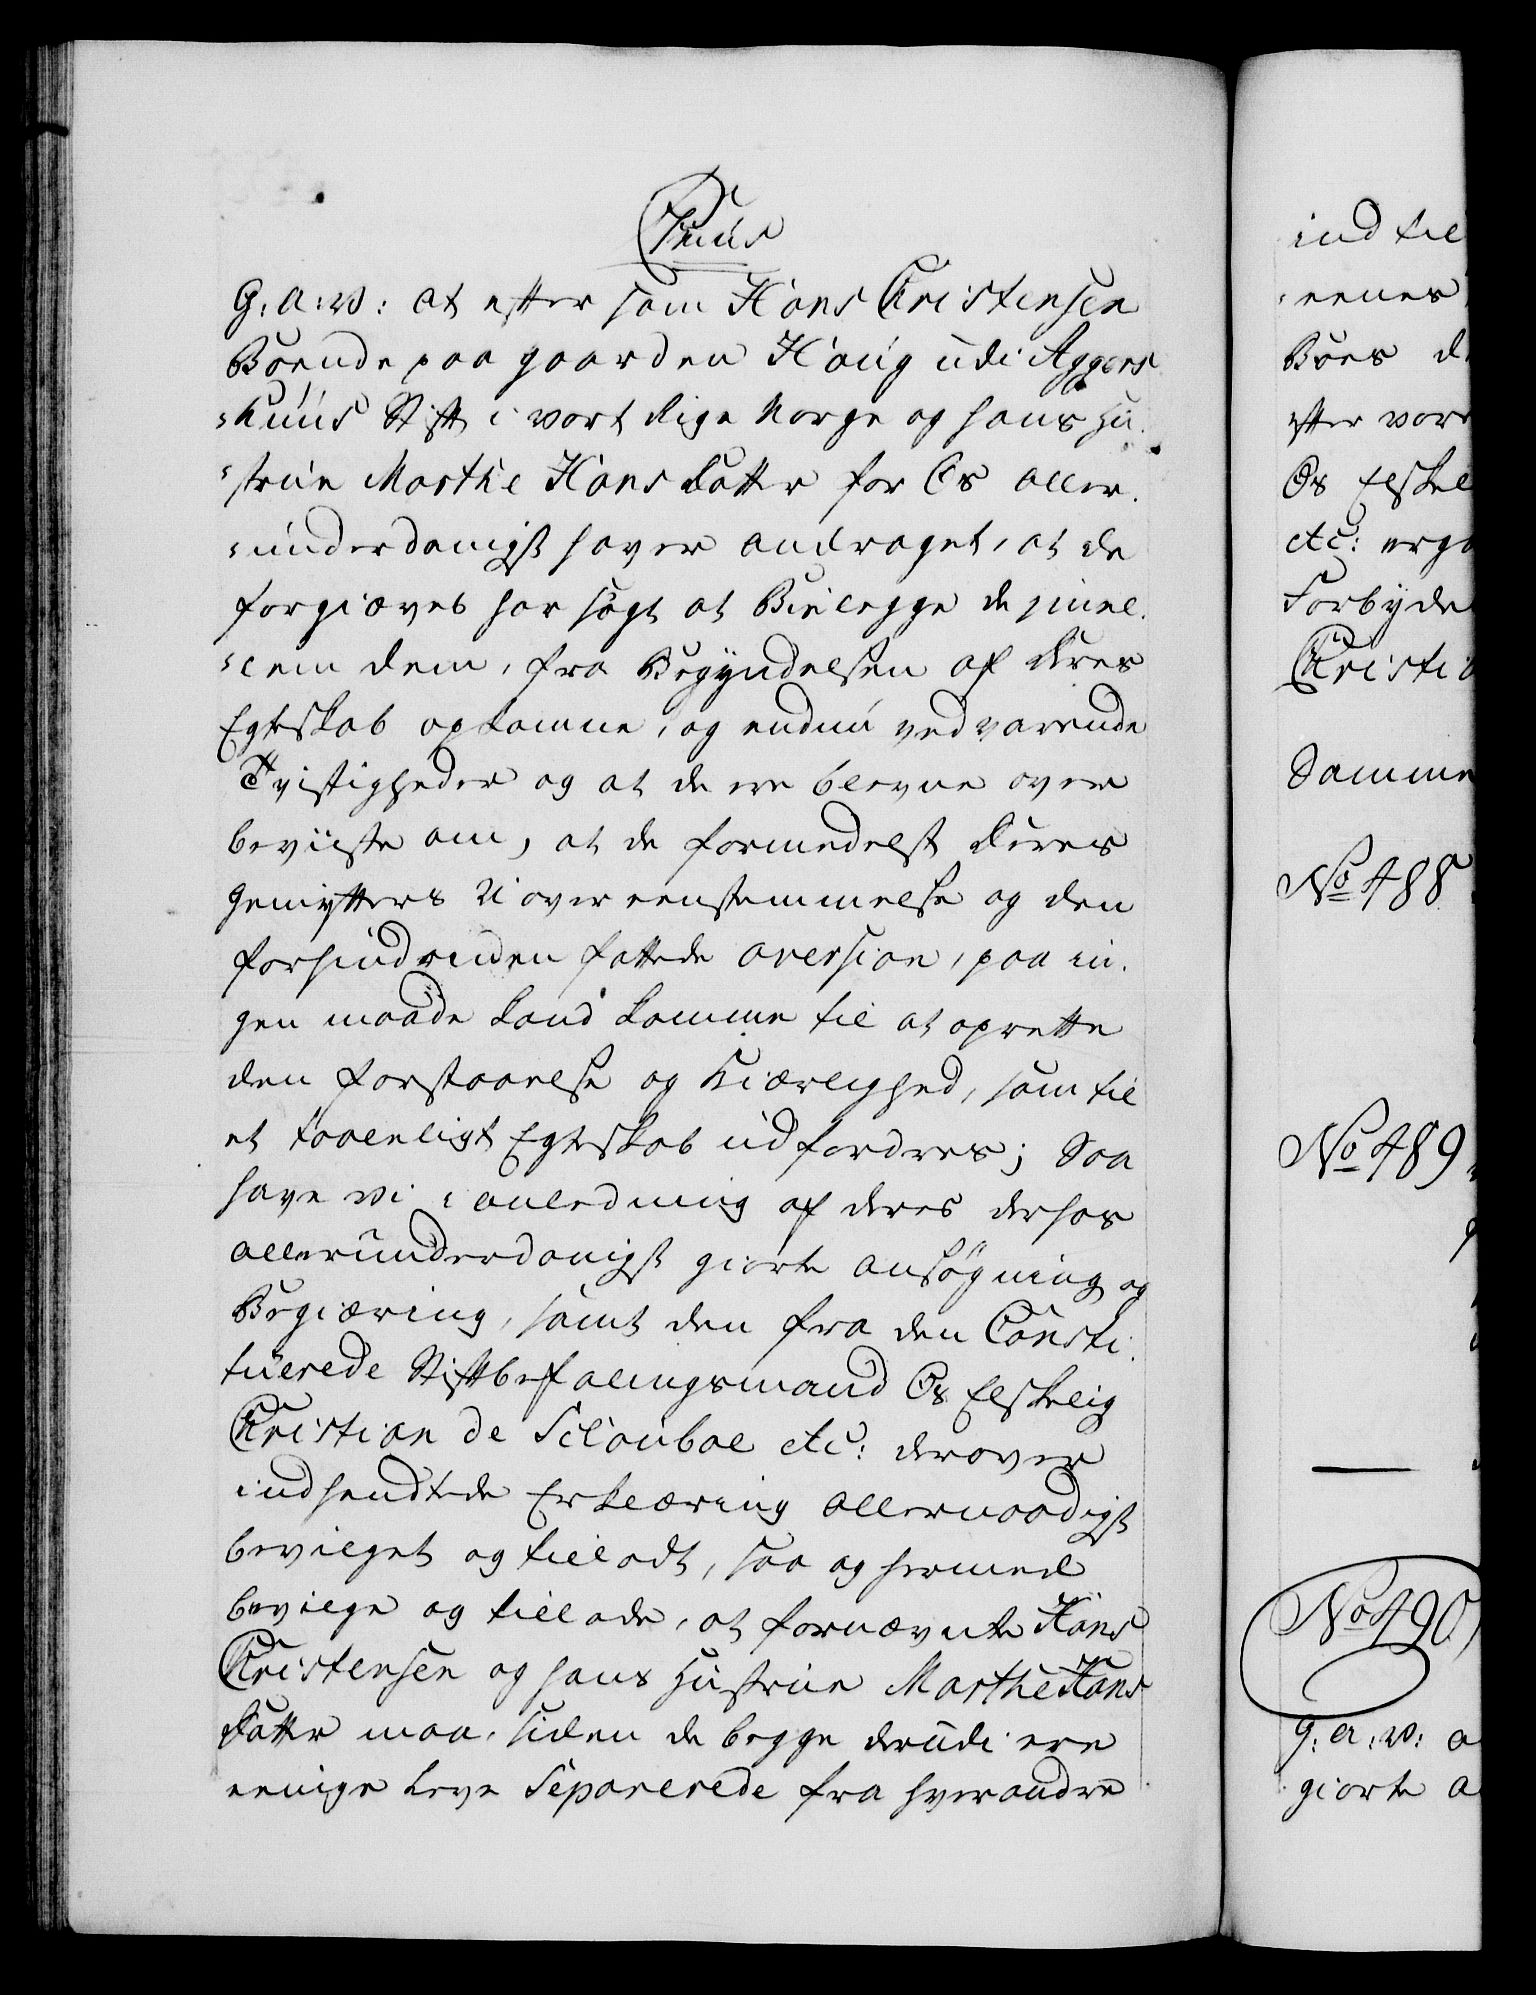 G: A: W: at efter som Hans Christensen
Boende paa gaarden Haug udi Agger-
-huus Stift i vort Rige Norge og hans Hu-
-strue Marthe Hans datter for Os aller-
-underdanigst haver andraget, at de
forgiæves har søgt at Bielegge de imel-
-lem dem, fra Begyndelsen af deres
Egteskab opkomne, og endnu vedvarende
Tvistigheder og at de ere blevne over
beviiste om, at de formedelst deres
gemytters Uoverenstemmelse og den
forhindanden fattede aversion, paa in-
gen maade kand komme til at oprette
den forstaaelse og Kiærlighed, som til
et taaleligt Egteskab udfordres; Saa
have vi i anledning af deres derhos
allerunderdanigst giorte ansøgning og
Begiæring, samt den fra den Consti-
tuerede Stiftbefalingsmand Os Elskelig
Christian de Schouboe etc: derover
indsendte Erklæring allernaadigst
bevilget og tilladt, saa og hermed
bevilge og tillade, at fornævnte Hans
Christensen og hans Hustrue Marthe Hans
datter maa, siden de begge derudi ere
eenige leve Separerede fra hverandre
ind til
Boes
efter vore
Os Elskel
etc:
Forbyde
Christia
Samme
No 488
No 489
No 490
G: A: W: a
giorte a